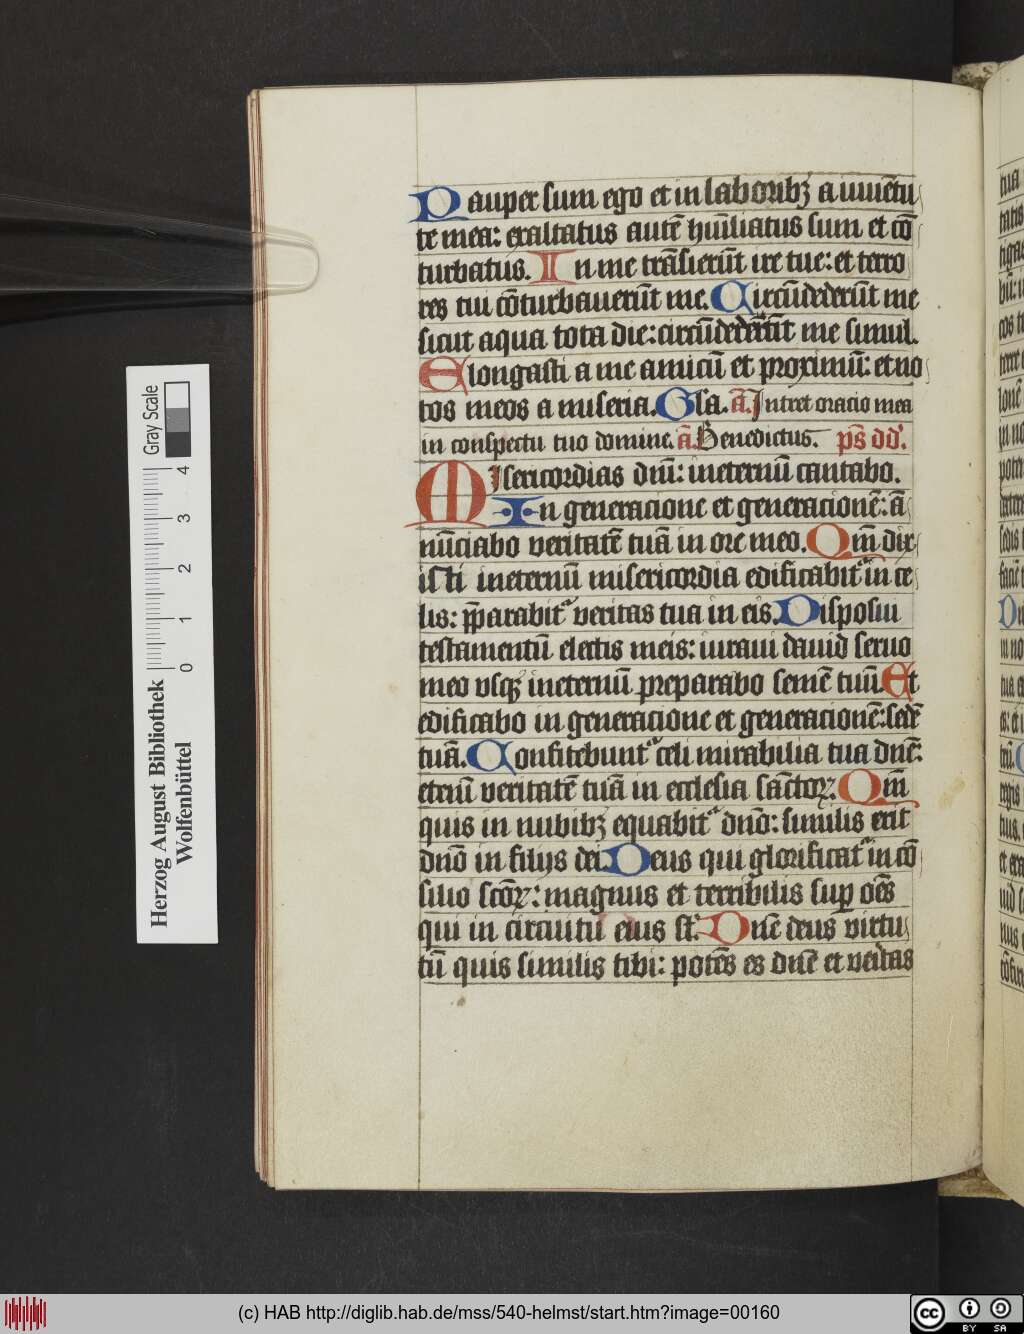 Pauper sum ego et in laboribꝫ a iuuētu
te mea: exaltatus autē hūiliatus sum et cō
turbatus. In me trāsierūt ire tue: et terro
res tui cōturbauerūt me. Circūdederūt me
sicut aqua tota die: circūdederūt me simul.
Elongasti a me amicū et proximū: et no
tos meos a miseria. Gla. a̅. Intret oracio mea
in conspectu tuo domine. a̅. Benedictus. ps̄ dd̓.
Misericordias dn̄i: ineternū cantabo.
In generacione et generacionē: ā
nūciabo veritatē tuā in ore meo. Qm̄ dix
isti ineternū misericordia edificabit᷑ in ce
lis: p̄parabit᷑ veritas tua in eis. Disposui
testamentū electis meis: iuraui dauid seruo
meo vsqꝫ ineternū preparabo semē tuū. Et
edificabo in generacione et generacionē: sedē
tuā. Confitebunt᷑ celi mirabilia tua dn̄e:
etenī veritatē tuā in ecclesia sāctoꝝ. Qm̄
quis in nubibꝫ equabit᷑ dn̄o: similis erit
dn̄o in filijs dei. Deus qui glorificat᷑ in cō
silio sc̄oꝝ: magnus et terribilis sup̄ oēs
qui in circuitu eius st̄. Dn̄e deus virtu
tū quis similis tibi: potēs es dn̄e et veritas
Herzog August Bibliothek
Wolfenbüttel
Gray Scale
0 1 2 3 4
(c) HAB http://diglib.hab.de/mss/540-helmst/start.htm?image=00160
cc BY SA